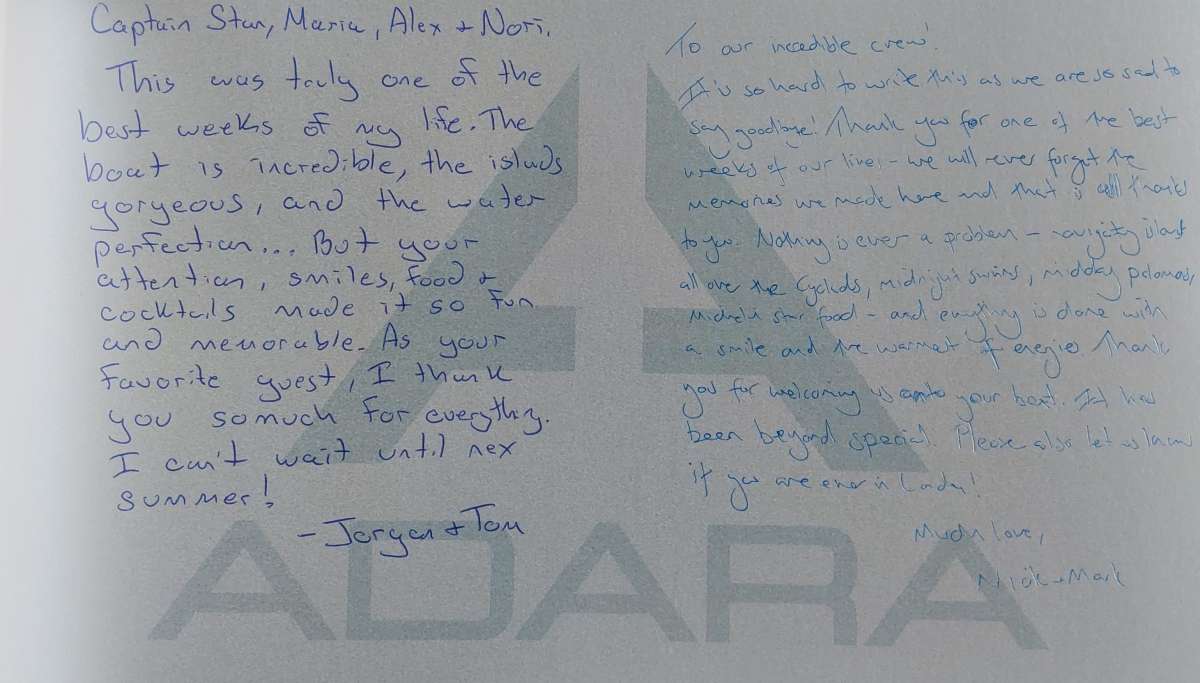 Captain Stav, Maria, Alex + Nori.
This was truly one of the
best weeks of my life. The
boat is incredible, the islnds
gorgeous, and the water
perfection... But your
attention, smiles, food +
cocktails made it so fun
and memorable. As your
favorite guest, I thank
you somuch for everything.
I can't wait until nex
summer!
- Jorgen + Tom
To our incredible crew!
It is so hard to write this as we are so sad to
say goodbye! Thank you for one of the best
weeks of our lives - we will never forget the
memories we made here and that is all thanks
to you. Nothing is ever a problem - navigating
all over the midnight swims, midday palomas,
Michelin star food - and everything is done with
a smile and the warmest of energies. Thank
you for welcoming us onto your boat. It has
been beyond special. Please also let us know
if you are ever in London!
Much love,
Nick + Mark
ADARA